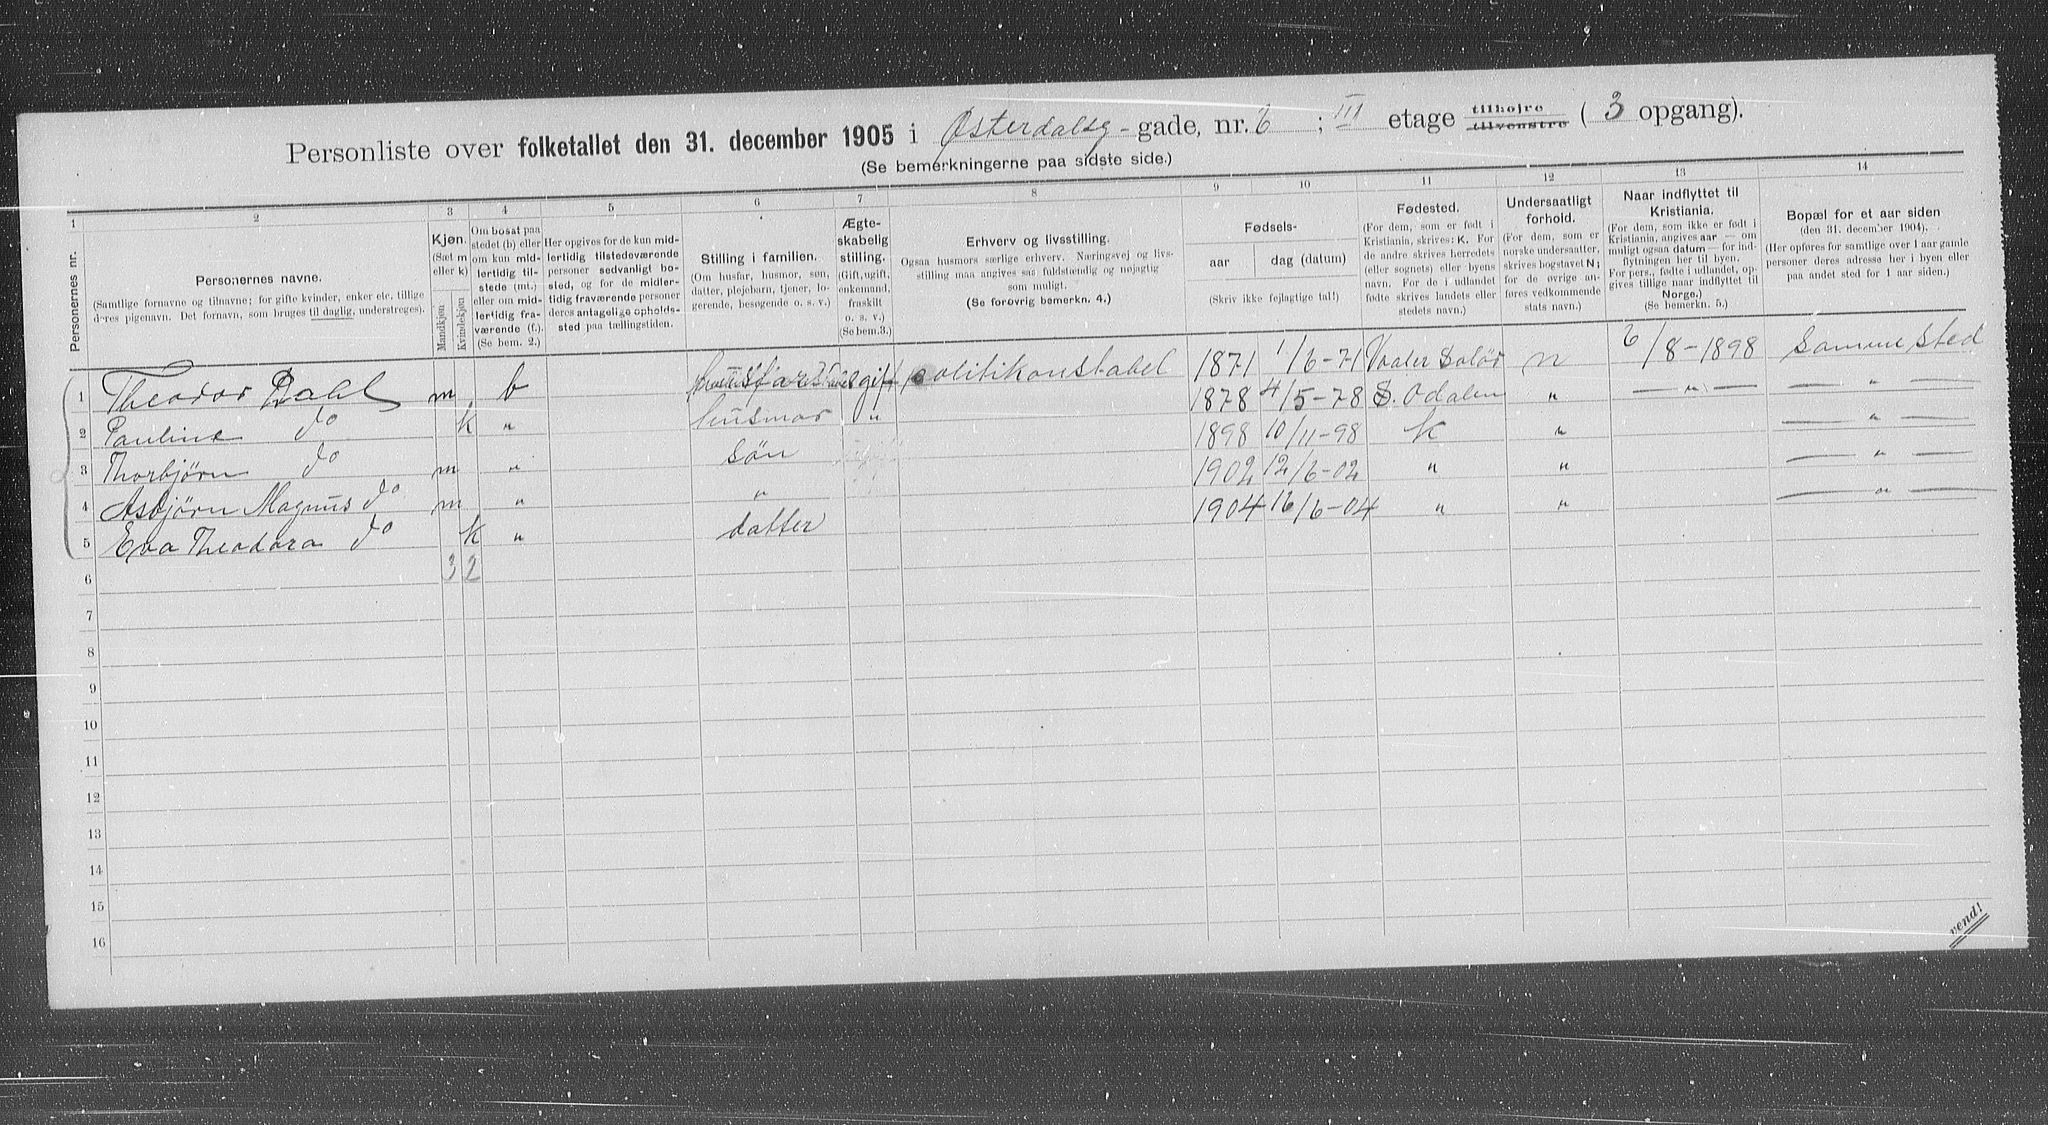 Personliste over folketallet den 31. december 1905 i Østerdalsg - gade, nr. 6 ; III etage tilhøjre tilvenstre ( 3 opgang).
(Se bemerkningerne paa sidste side.)
1 2 3 4 5 6 7 8 9 10 11 12 13 14
Personernes nr.
Personernes navne.
(Samtlige fornavne og tilnavne; for gifte kvinder, enker etc. tillige
deres pigenavn. Det fornavn, som bruges til daglig, understreges).
Kjøn.
(Sæt m
eller k)
Mandkjøn
Kvindekjøn
Om bosat paa
stedet (b) eller
om kun mid-
lertidig til-
stede (mt.)
eller om mid-
lertidig fra-
værende (f.).
(Se bem. 2.)
Her opgives for de kun mid-
lertidig tilstedeværende
personer sedvanligt bo-
sted, og for de midler-
tidig fraværende personer
deres antagelige opholds-
sted paa tællingstiden.
Stilling i familien.
(Om husfar, husmor, søn,
datter, plejebarn, tjener, lo-
gerende, besøgende o. s. v.)
Ægte-
skabelig
stilling.
(Gift, ugift,
enkemand,
fraskilt
o. s. v.)
(Se bem.3.)
Erhverv og livsstilling.
Ogsaa husmors særlige erhverv. Næringsvej og livs-
stilling maa angives saa fuldstændig og nøjagtig
som muligt.
(Se forøvrig bemerkn. 4.)
Fødsels-
aar dag (datum)
(Skriv ikke fejlagtige tal!)
Fødested.
(For dem, som er født i
Kristiania, skrives: K. For
de andre skrives herredets
(eller sognets) eller byens
navn. For de i udlandet
fødte skrives landets eller
stedets navn.)
Undersaatligt
forhold.
(For dem, som er
norske undersaatter,
skrives bogstavet N;
for de øvrige an-
føres vedkommende
stats navn.)
Naar indflyttet til
Kristiania.
(For dem, som ikke er født i
Kristiania, angives aar — om
muligt ogsaa datum — for ind-
flytningen her til byen.
For pers., fødte i udlandet, op-
gives tillige naar indflyttet til
Norge.)
(Se bemerkn. 5.)
Bopæl for et aar siden
(den 31. december 1904).
(Her opføres for samtlige over 1 aar gamle
personer deres adresse her i byen eller
paa andet sted for 1 aar siden.)
1 Theodor Dahl m b husfar gift politikonstabel 1871 1/6-71 Vaaler Solør n 6/8-1898 Samme sted
2 Pauline do k " husmor " 1878 4/5-78 S. Odalen " — " — — " —
3 Thorbjørn do m " søn 1898 10/11-98 K " — " —
4 Asbjørn Magnus do m " " 1902 12/6-02 " " — " —
5 Eva Theodora do k " datter 1904 16/6-04 " " — " —
6 3 2
7
8
9
10
11
12
13
14
15
16
vend!